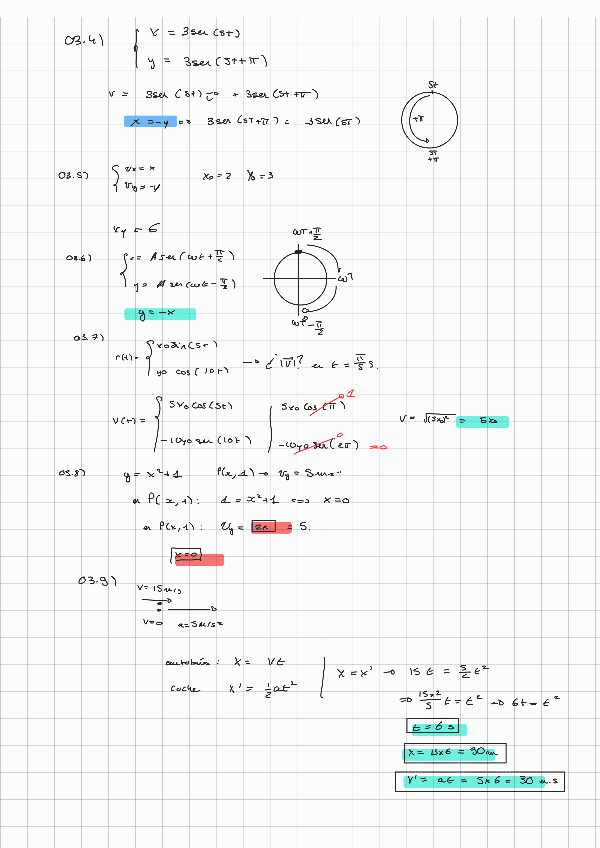 03.4)
x = 3sen(5t)
y = 3sen(5t+π)
v = 3sen(5t) + 3sen(5t+π)
x = -y => 3sen(5t+π) = 3sen(5t)
5t
+π
5t
+π
03.5)
vx = x
vy = -y
x0 = 2 y0 = 3
vy = 6
03.6)
x = A sen(ωt+π/2)
y = A sen(ωt-π/2)
y = -x
ωt+π/2
ωt
ωt-π/2
03.7)
r(t) = x0 sin(5t)
y0 cos(10t)
→ ¿|V|? en t = π/5 s.
V(t) = 5x0 cos(5t)
-10y0 sen(10t)
5x0 cos(π) 1
-10y0 sen(2π) 0 = 0
= 5x0
03.8)
y = x²+1 P(x,1) → vy = 5
en P(x,1): 1 = x²+1 <=> x=0
en P(x,1): vy = 2x = 5.
x=0
03.9)
V=15m/s
V=0 a=5m/s²
x = Vt
coche x' = 1/2 at²
x = x' → 15t = 5/2 t²
=> 15x2/5 t = t² → 6t = t²
t = 6 s
x = 15x6 = 90m
V' = at = 5x6 = 30 m.s